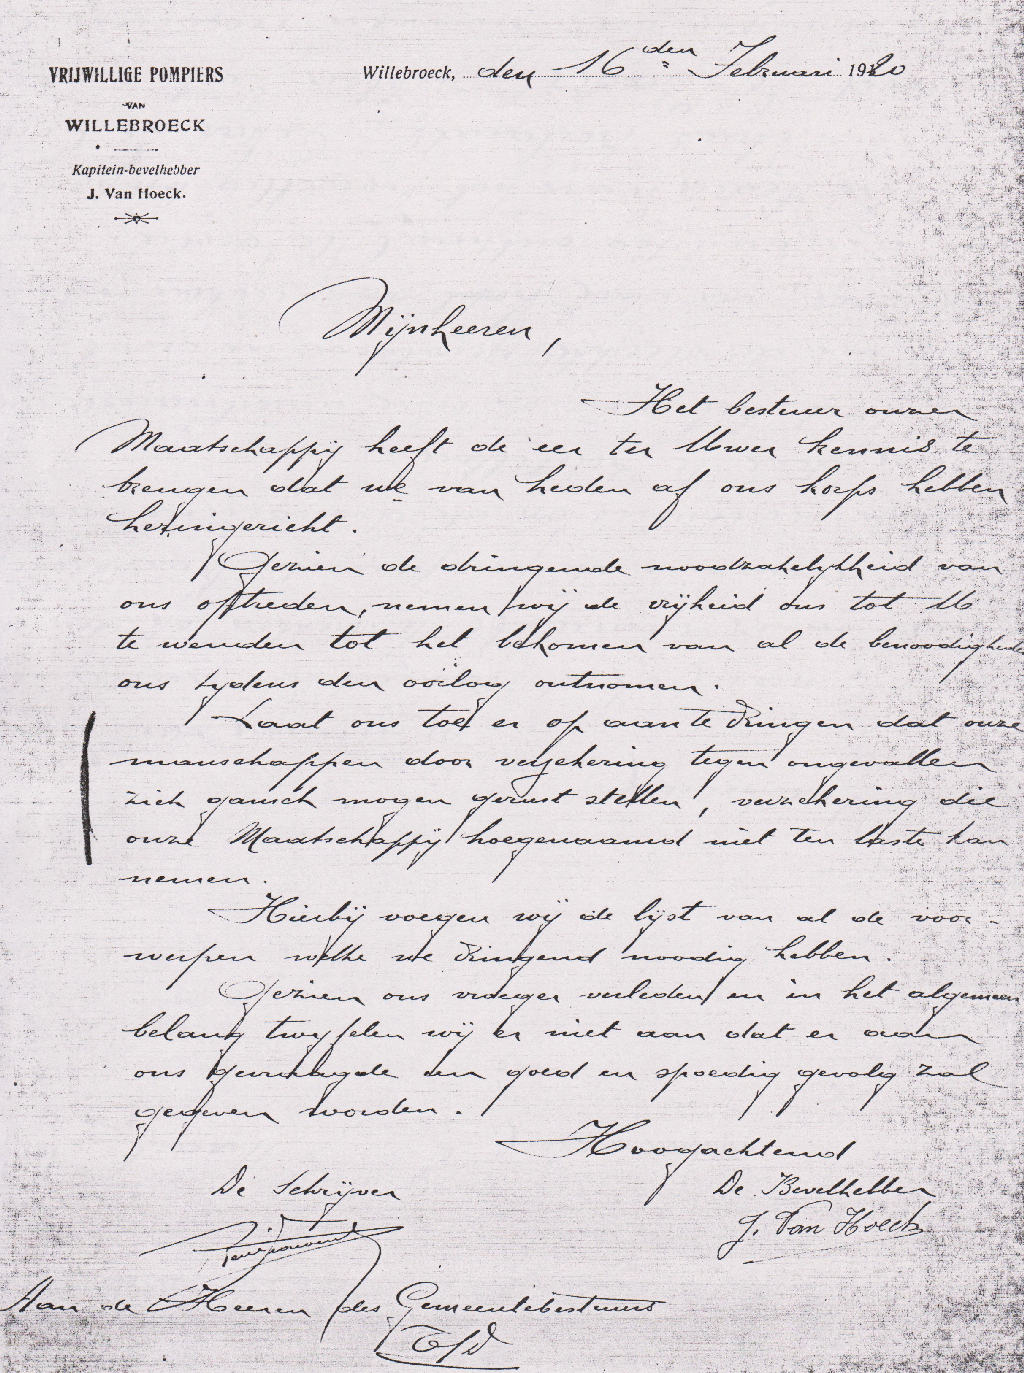 VRIJWILLIGE POMPIERS
VAN
WILLEBROECK
Kapitein-bevelhebber
J. Van Hoeck.
Willebroeck, den 16den Februari 1920
Mijnheeren,
Het bestuur onzer
Maatschappij heeft de eer ter Uwer kennis te
brengen dat we van heden af ons korps hebben
heringericht.
Gezien de dringende noodzakelijkheid van
ons optreden, nemen wij de vrijheid ons tot U
te wenden tot het bekomen van al de benoodigheden
ons tydens den oorlog ontnomen.
Laat ons toe er op aan te dringen dat onze
manschappen door verzekering tegen ongevallen
zich gansch mogen gerust stellen, verzekering die
onze Maatschappij hoegenaamd niet ten laste kan
nemen.
Hierbij voegen wij de lijst van al de voor-
werpen welke we dringend noodig hebben.
Gezien ons vroeger verleden en in het algemeen
belang twyfelen wij er niet aan dat er aan
ons gevraagde een goed en spoedig gevolg zal
gegeven worden.
Hoogachtend
De Schrijver
De Bevelhebber
J. Van Hoeck
Aan de Heeren des Gemeentebestuurs